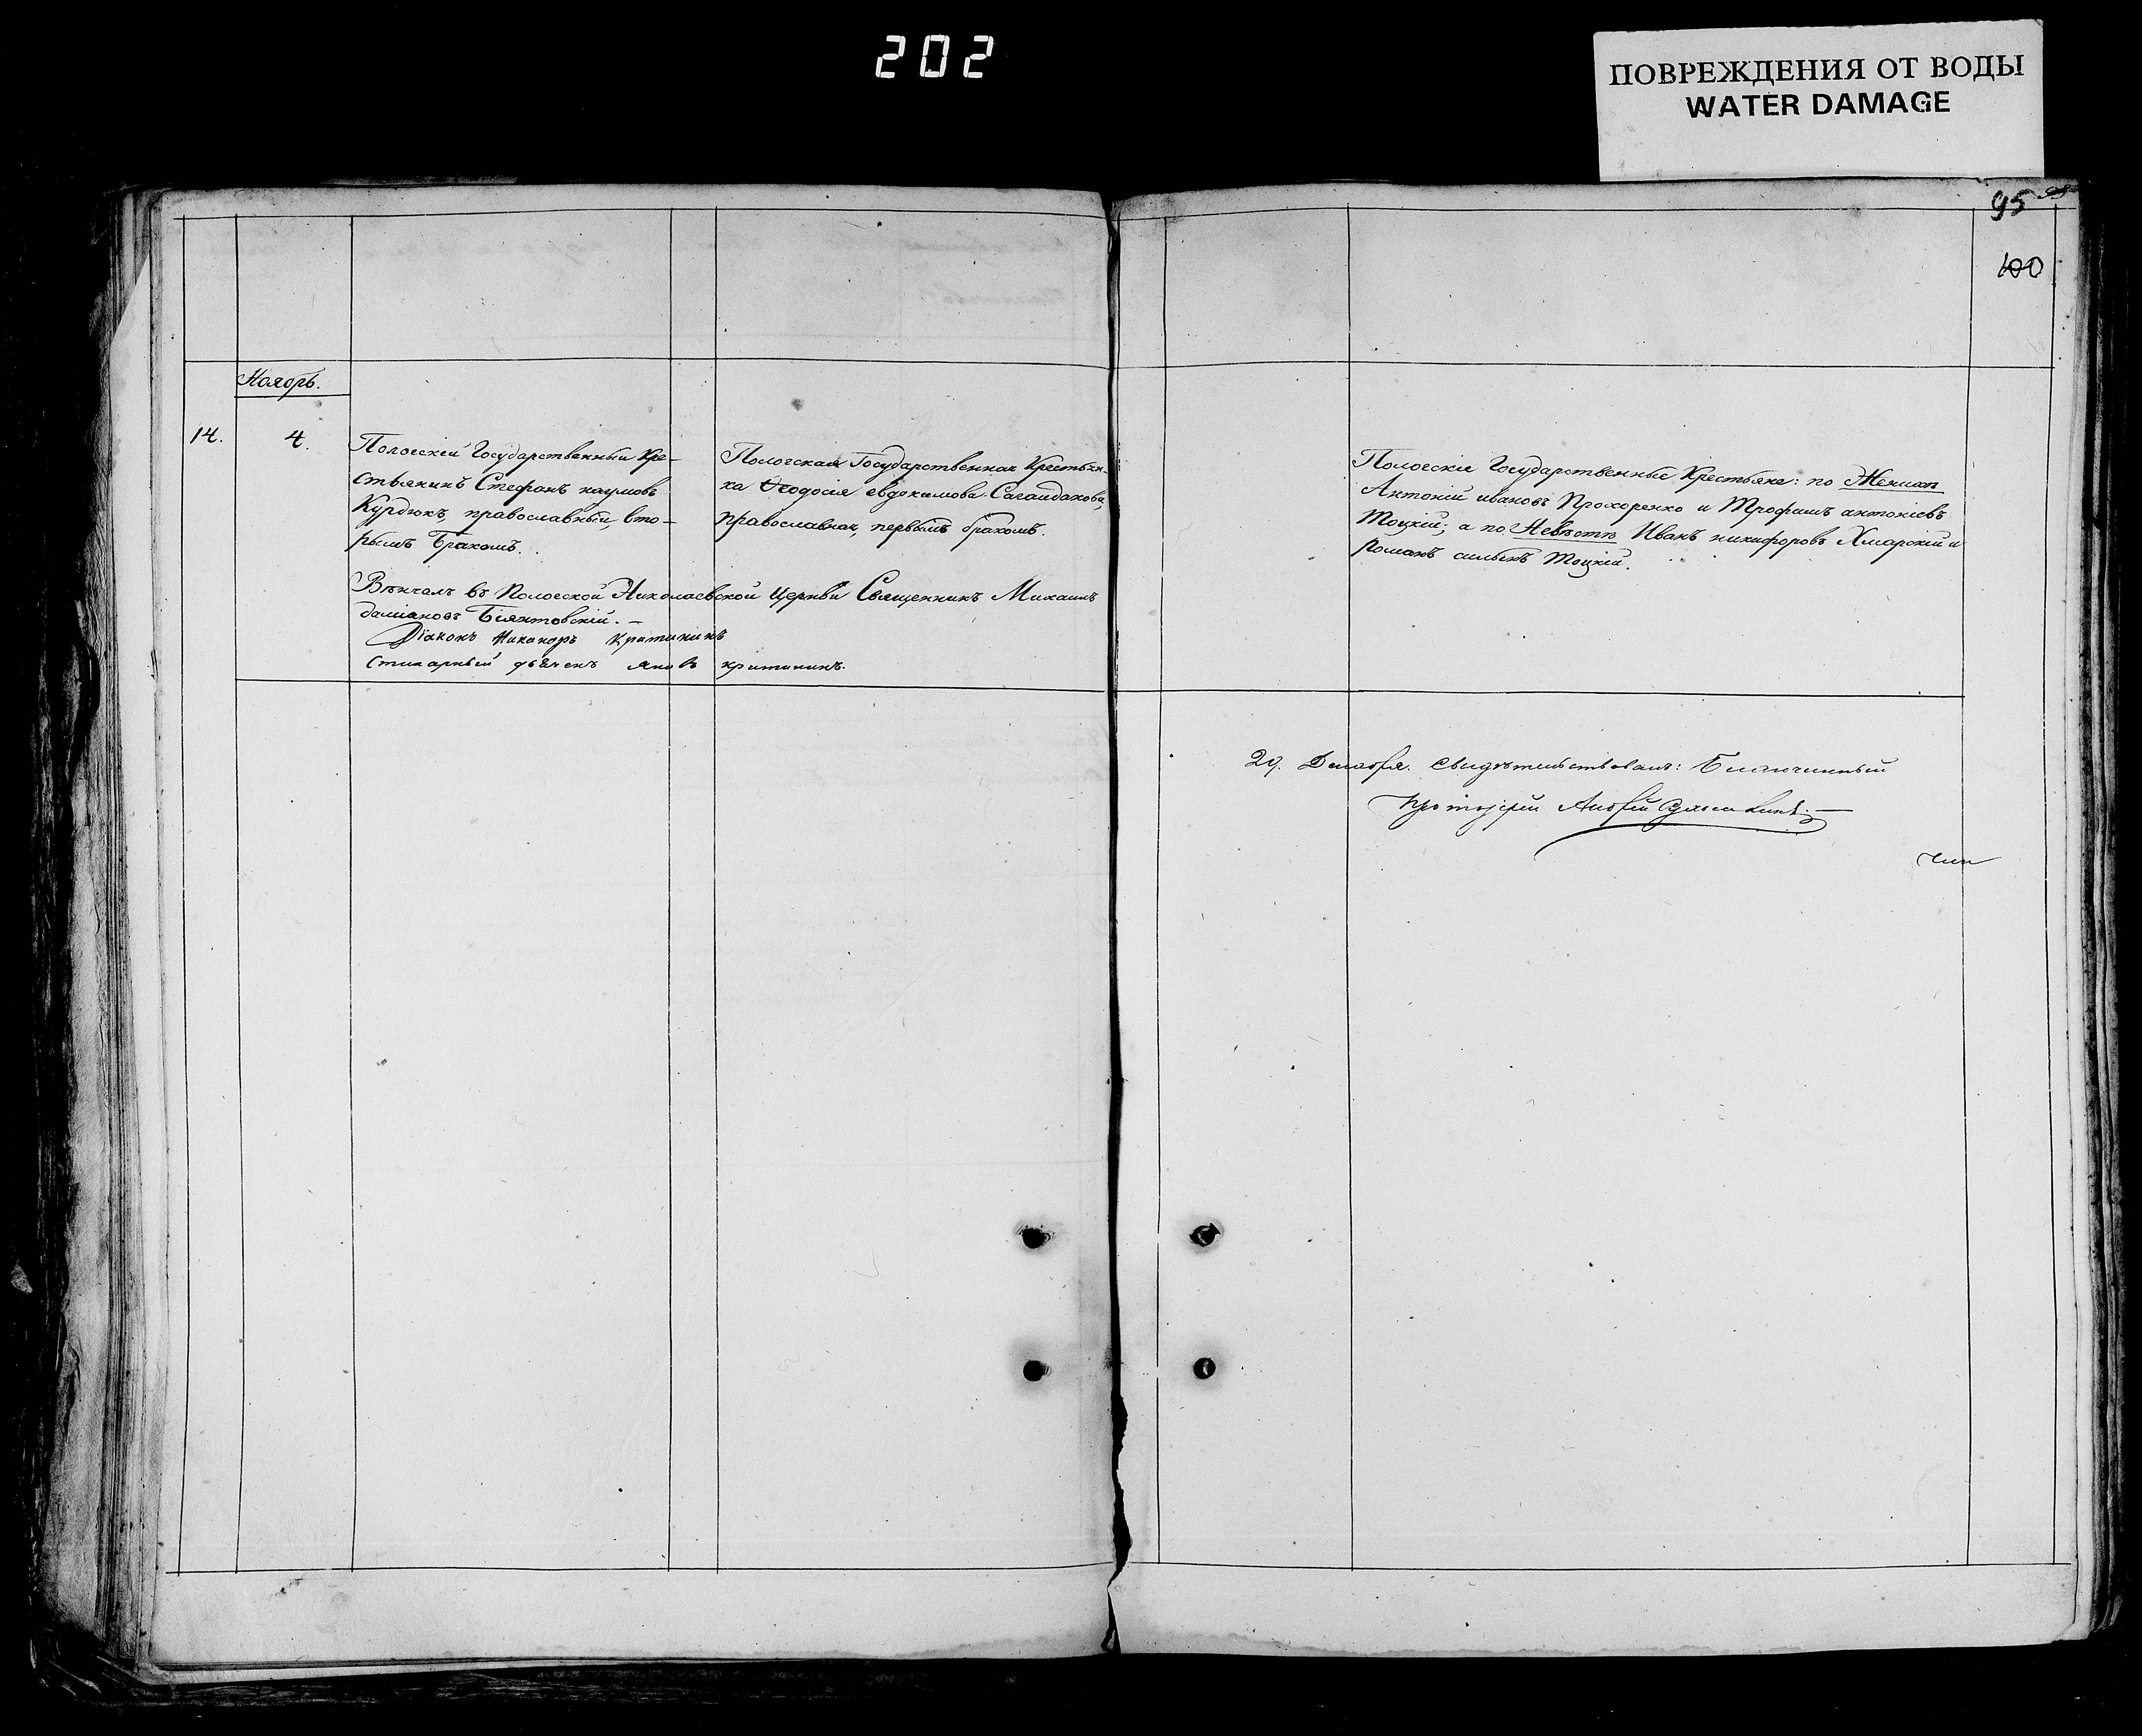 202
ПОВРЕЖДЕНИЯ ОТ ВОДЫ
WATER DAMAGE
95
100
Ноябрь.
14.
4.
Пологскій Государственный Кре-
стьянинъ Стефанъ наумовъ
Курдюкъ, православный, вто-
рымъ бракомъ.
Пологская Государственная Крестьян-
ка Ѳеодосія евдокимова Сагайдакова,
православная, первымъ бракомъ.
Вѣнчалъ въ Пологской Николаевской Церкви Священникъ Михаилъ
даміановъ
Діаконъ Никаноръ Критининъ
Стихарный дьячекъ яковъ критининъ.
Пологскіе Государственные Крестьяне: по Женихѣ
Антоній ивановъ Прохоренко и Трофимъ антоніевъ
Тоцкій; а по Невѣстѣ Иванъ никифоровъ Хмарскій и
романъ силинъ Тоцкій.
29. Декабря. Свидѣтельствовалъ: Благочинный
Протоіерей Андрей